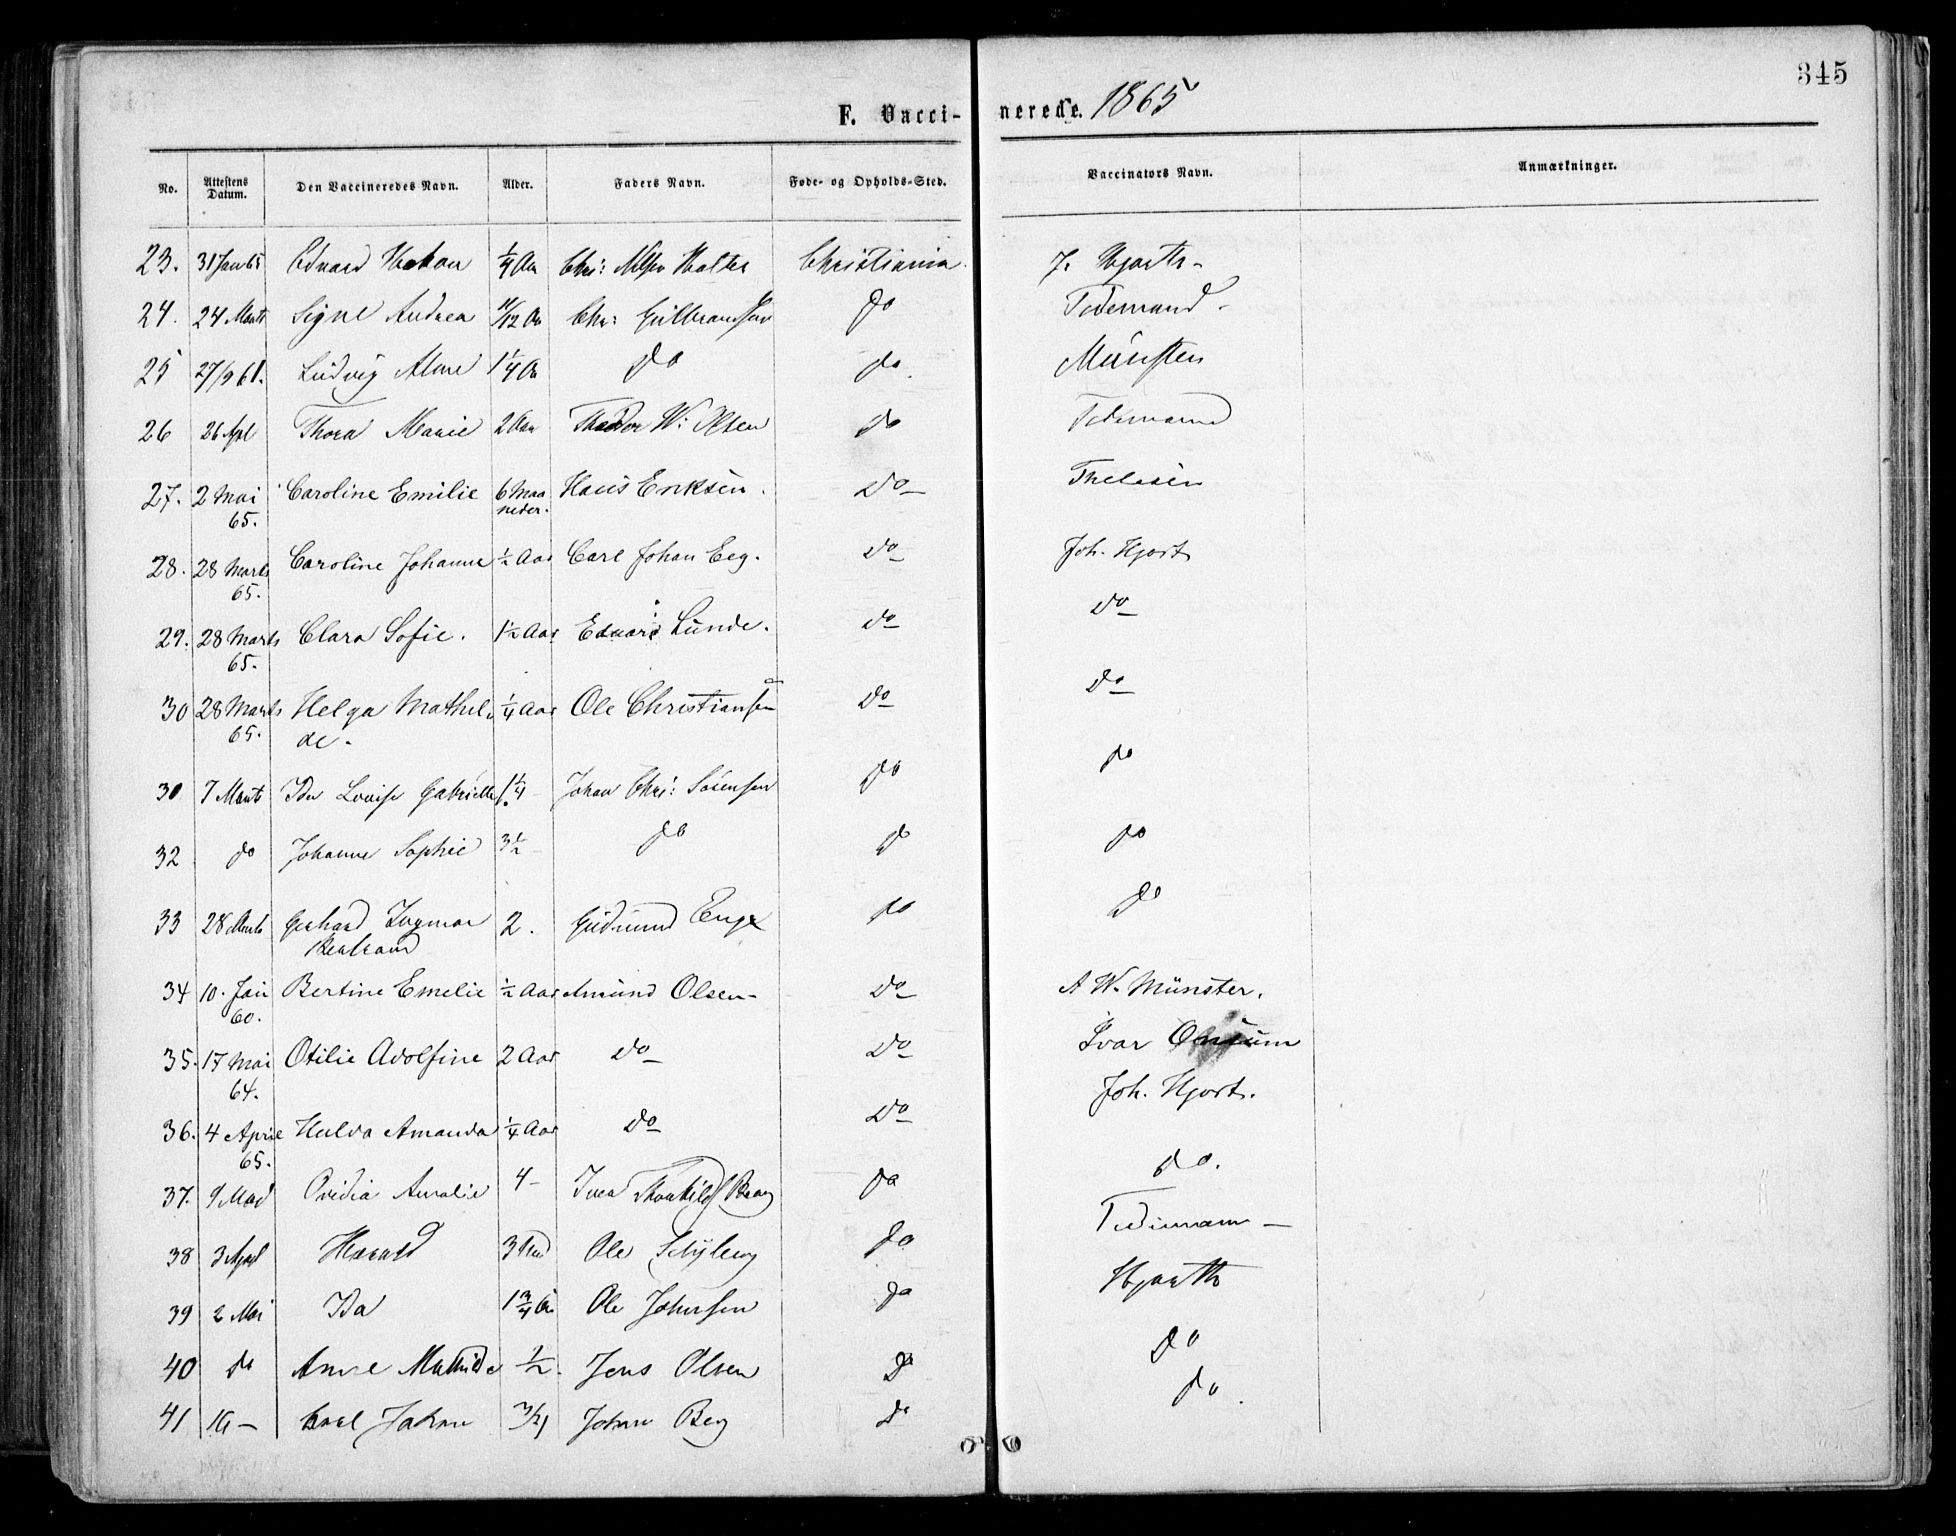 345
F. Vaccinerede. 1865
No. Attestens Datum. Den Vaccineredes Navn. Alder. Faders Navn. Føde- og Opholds-Sted. Vaccinators Navn. Anmærkninger.
23. 31 Jan 65 Edvard Hakon 1/4 Aar Chr: Christiania J. Hjorth
24. 24 Marts Signe Andrea 11/12 Aar Chr: Gulbransen do Tidemand
25 27/9 61. Ludvig 1 1/4 Aar do do Münster
26 26 Apl Thora Marie 2 Aar Theodor W: Olsen do Tidemand
27. 2 Mai 65. Caroline Emilie 6 Maaneder. Hans Eriksen. do
28. 28 Marts 65. Caroline Johanne 1/2 Aar Carl Johan Eeg. do Joh. Hjort
29. 28 Marts 65. Clara Sofie. 1 1/2 Aar Edvard Lunde. do do
30 28 Marts 65. Helga Mathilde. 1/4 Aar Ole Christiansen do do
30 7 Marts Ida Lovise Gabrielle 1 1/4 Johan Chr: Sörensen do do
32 do Johanne Sophie 3 1/2 do do do
33 28 Marts Gerhard Ingmar Bertrand 2. Gudmund Enge do do
34 10. Jan 60. Bertine Emelie 1/2 Aar Amund Olsen do A W. Münster.
35. 17 Mai 64. Otilie Adolfine 2 Aar do do Ivar
36. 4 April 65. Hulda Amanda 1/4 Aar do do Joh. Hjort.
37. 9 Mai Ovidia Amalie 4 Berg do do.
38 3 April Harald 3 Ole do Tidemann
39 2 Mai Ida 1 3/4 Aar Ole Johnsen do Hjorth
40 do Anne Mathilde 1/2. Jens Olsen do do
41 16 Carl Johan Johan Berg do do.